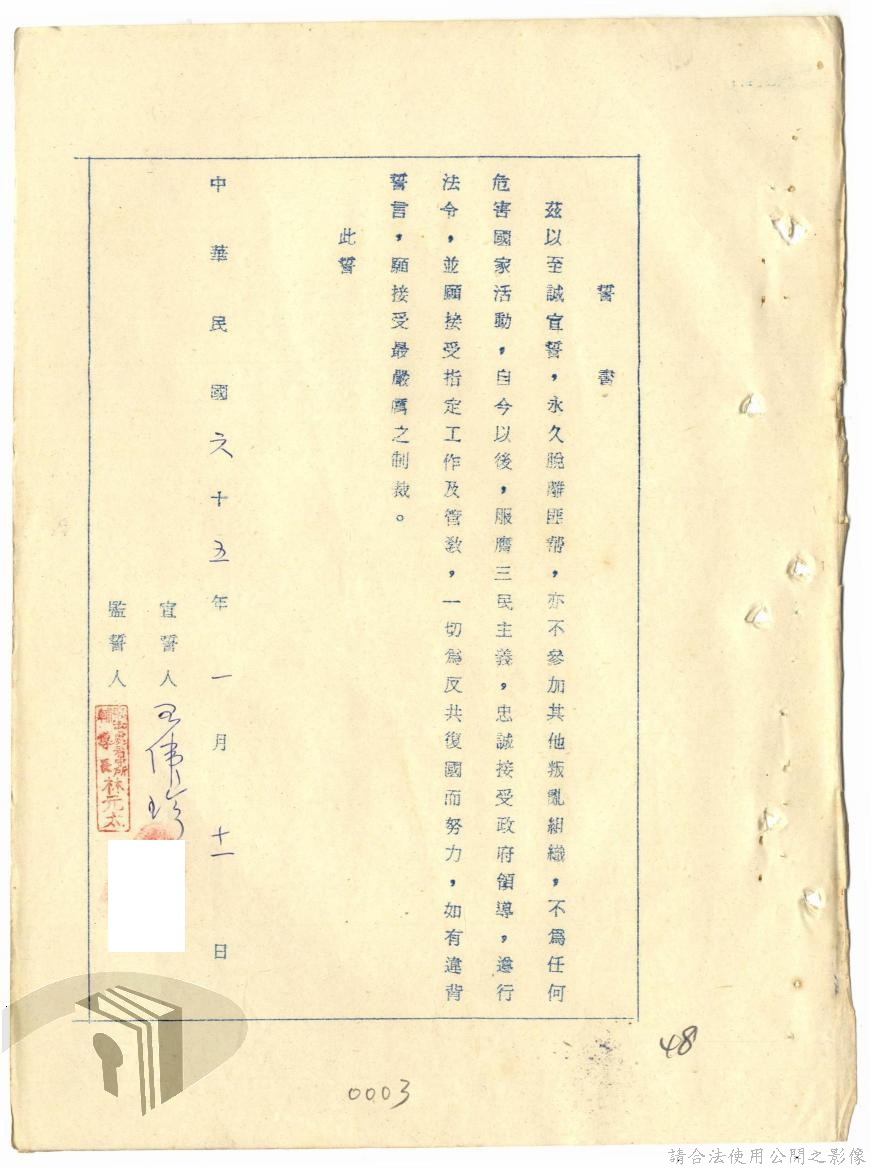 誓書
茲以至誠宣誓，永久脫離匪幫，亦不參加其他叛亂組織，不爲任何
危害國家活動，自今以後，服膺三民主義，忠誠接受政府領導，遵行
法令，並願接受指定工作及管教，一切爲反共復國而努力，如有違背
誓言，願接受最嚴厲之制裁。
此誓
中華民國六十五年一月十一日
宣誓人 王偉珍
監誓人
輔導長林元太
48
0003
請合法使用公開之影像